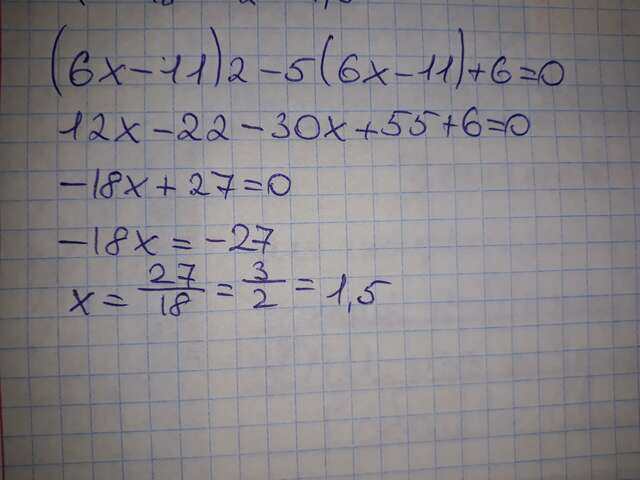 (6x-11)2-5(6x-11)+6=0
12x-22-30x+55+6=0
-18x+27=0
-18x=-27
x=27/18=3/2=1,5